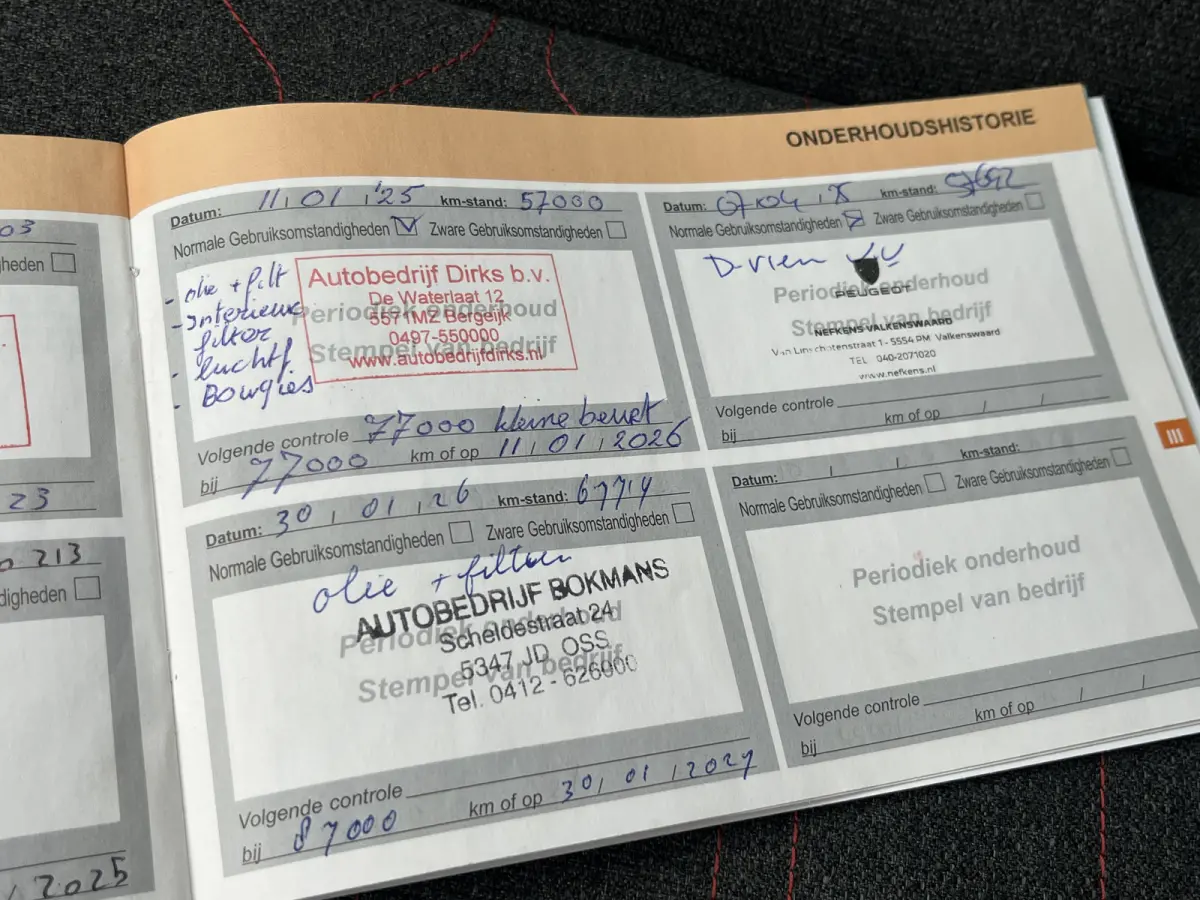 ONDERHOUDSHISTORIE
03
heden
23
0 213
digheden
2025
Datum: 11 01 '25 km-stand: 57000
Normale Gebruiksomstandigheden Zware Gebruiksomstandigheden
- olie + filt
- Interieur
filter
- luchtf
- Bougies
Autobedrijf Dirks b.v.
De Waterlaat 12
5571MZ Bergeijk
0497-550000
www.autobedrijfdirks.nl
Periodiek onderhoud
Stempel van bedrijf
Volgende controle 77000 kleine beurt
bij 77000 km of op 11 / 01 / 2026
Datum: 07 04 km-stand:
Normale Gebruiksomstandigheden Zware Gebruiksomstandigheden
PEUGEOT
Periodiek onderhoud
Stempel van bedrijf
NEFKENS VALKENSWAARD
Van Linschotenstraat 1 - 5554 PM Valkenswaard
TEL 040-2071020
www.nefkens.nl
Volgende controle
bij km of op / /
III
Datum: 30 / 01 / 26 km-stand:
Normale Gebruiksomstandigheden Zware Gebruiksomstandigheden
olie + filters
AUTOBEDRIJF BOKMANS
Scheldestraat 24
5347 JD OSS
Tel. 0412 - 626000
Periodiek onderhoud
Stempel van bedrijf
Volgende controle
bij 87000 km of op 30 / 01 / 2027
Datum: / / km-stand:
Normale Gebruiksomstandigheden Zware Gebruiksomstandigheden
Periodiek onderhoud
Stempel van bedrijf
Volgende controle
bij km of op / /